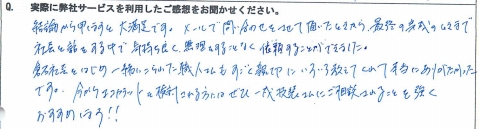 Q. 実際に弊社サービスを利用したご感想をお聞かせください。
結論から申しますと大満足です。メールで問い合わせをさせて頂いた時から、最終の完成の時まで
社長と話をする中で気持ち良く、無理することなく依頼することができました。
社長をはじめ一緒にこられた職人さんもすごく親切にいろいろ教えてくれて本当にありがたかった
です。今から を検討される方にはぜひ 装さんにご相談されることを強く
おすすめします!!